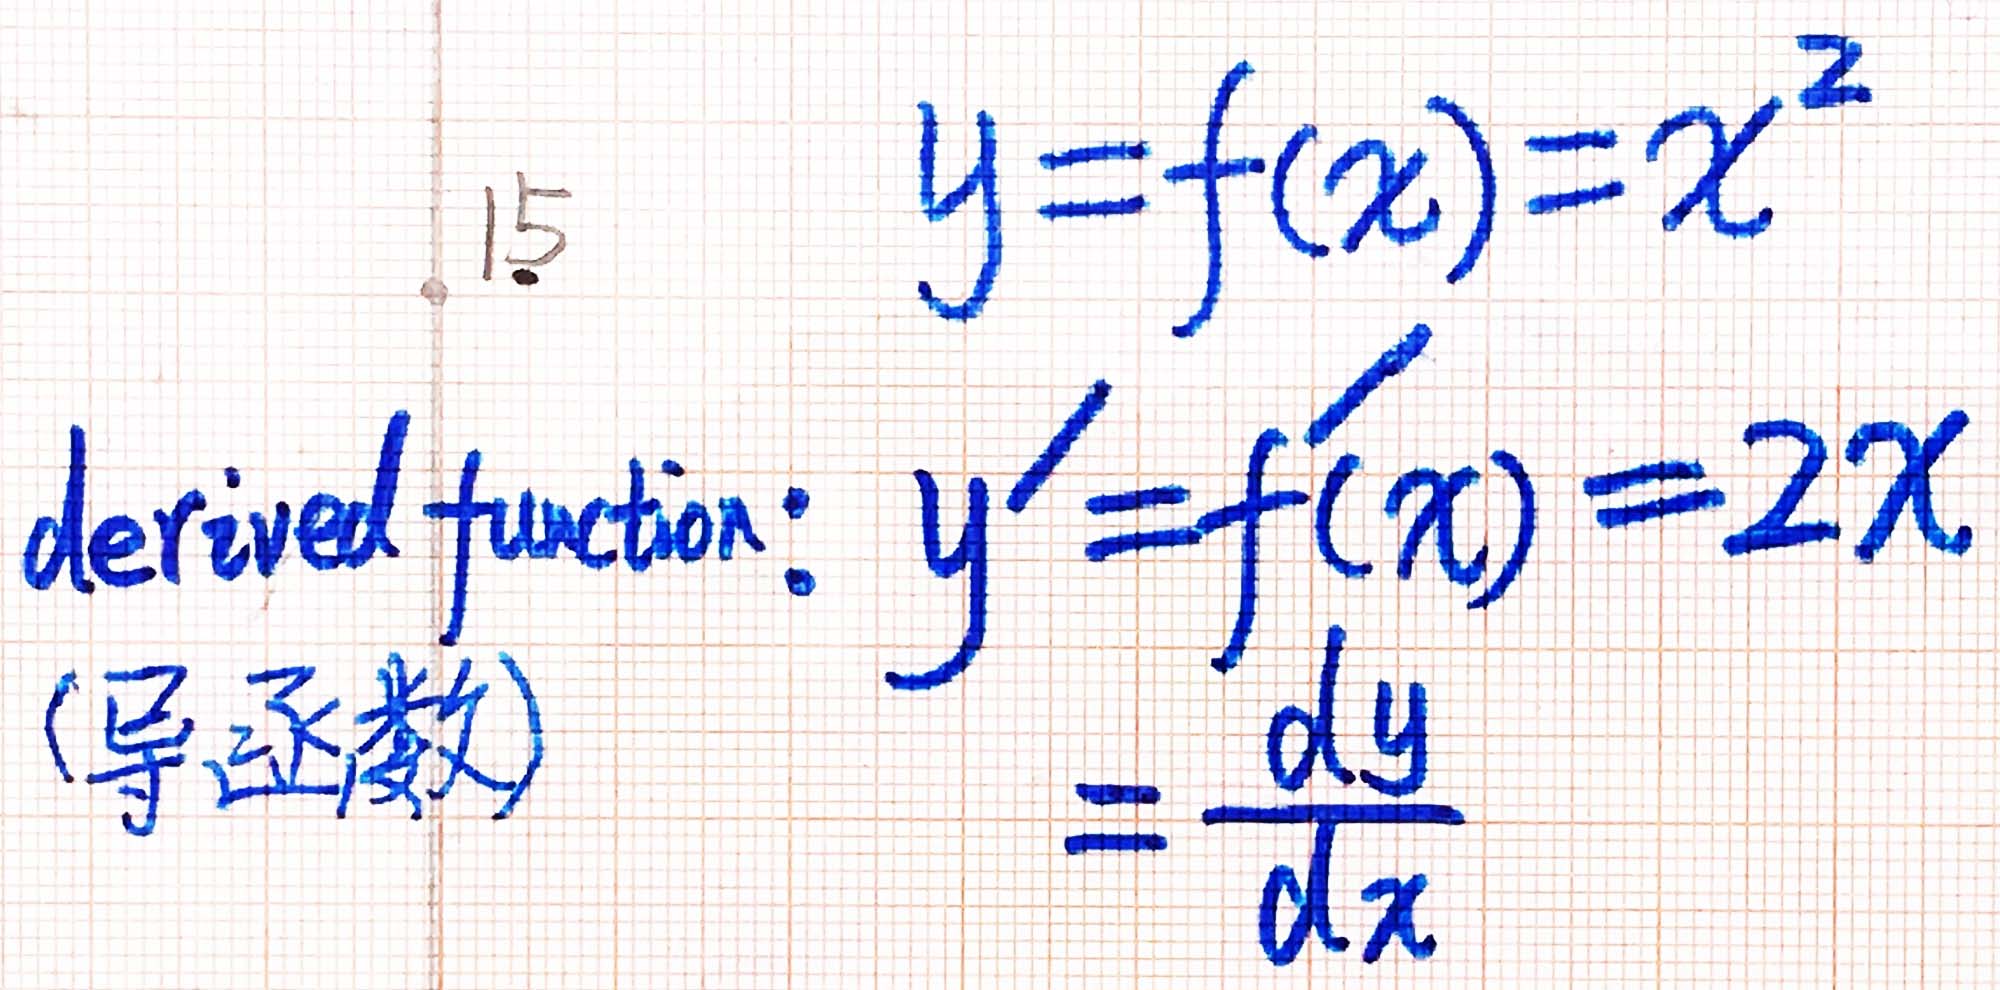 y=f(x)=x²
15
derived function: y′=f′(x)=2x
(导函数)
=dy/dx